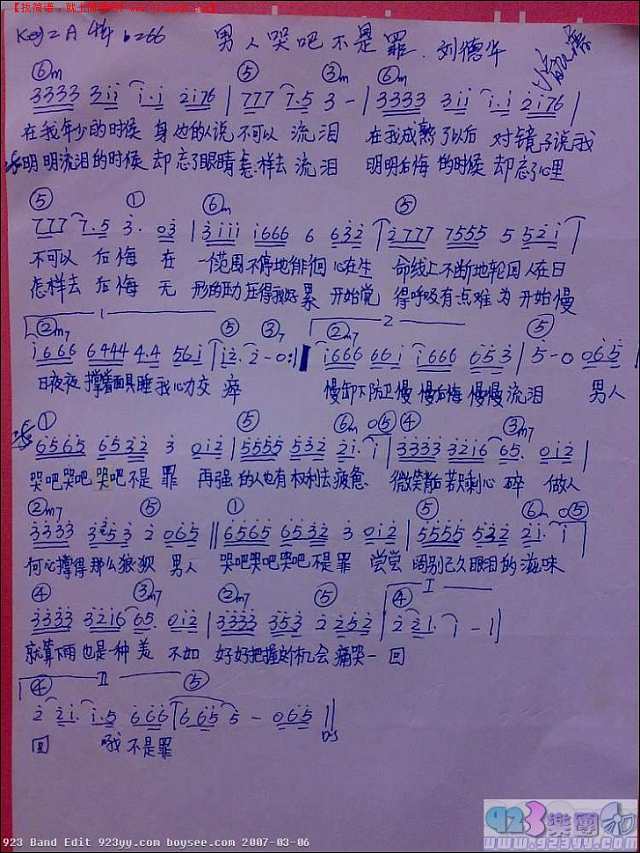 Key=A 66 男人哭吧不是罪 刘德华
⑥m ⑤ ③m ⑥m
3333 3ii i·i 2i76 | 777 7·5 3 - | 3333 3ii i·i 2i76 |
在我年少的时候 身边的人说 不可以 流泪 在我成熟了以后 对镜子说我
明明流泪的时候 却忘了眼睛怎样去 流泪 明明后悔的时候 却忘了心里
⑤ ① ⑥m ⑤
777 7·5 3· 03 | 3iii i666 6 632 | 2777 7555 5 52i |
不可以 后悔 在 一范围不停地徘徊 心在生 命线上不断地轮回 人在日
怎样去 后悔 无 形的压力在得我好累 开始觉 得呼吸有点难为 开始慢
②m7 1 ⑤ ③7 ②m7 2 ⑤
i666 6444 4·4 56i | i2· 2 - 0 :| i666 66i i666 653 | 5 - 0 065 |
日夜夜 撑着面具睡 我心力交 瘁 慢卸下防卫慢 慢后悔 慢慢流泪 男人
① ⑤ ⑥m ⑤ ④ ③m7
6565 6532 3 012 | 5555 532 2i· i | 3333 3216 65· 012 |
哭吧哭吧 哭吧不是 罪 再强 的人也有 权利去疲惫 微笑背后若只剩心 碎 做人
②m7 ⑤ ① ⑤ ⑥m ⑤
3333 3253 2 065 || 6565 6532 3 012 | 5555 532 2i· i |
何必撑得那么狼狈 男人 哭吧哭吧哭吧不是罪 尝尝 阔别已久眼泪的滋味
④ ③m7 ②m7 ⑤ ④ I
3333 3216 65· 012 | 3333 353 2 2252 | 2 2i· i - 1 |
就算下雨也是一种美 不如 好好把握这机会 痛哭一 回
④ II ⑤
2 2i· i·5 666 | 665 5 - 065 ||
回 哦 不是罪 DS
923樂團
www.923yy.com
923 Band Edit 923yy.com boysee.com 2007-03-06